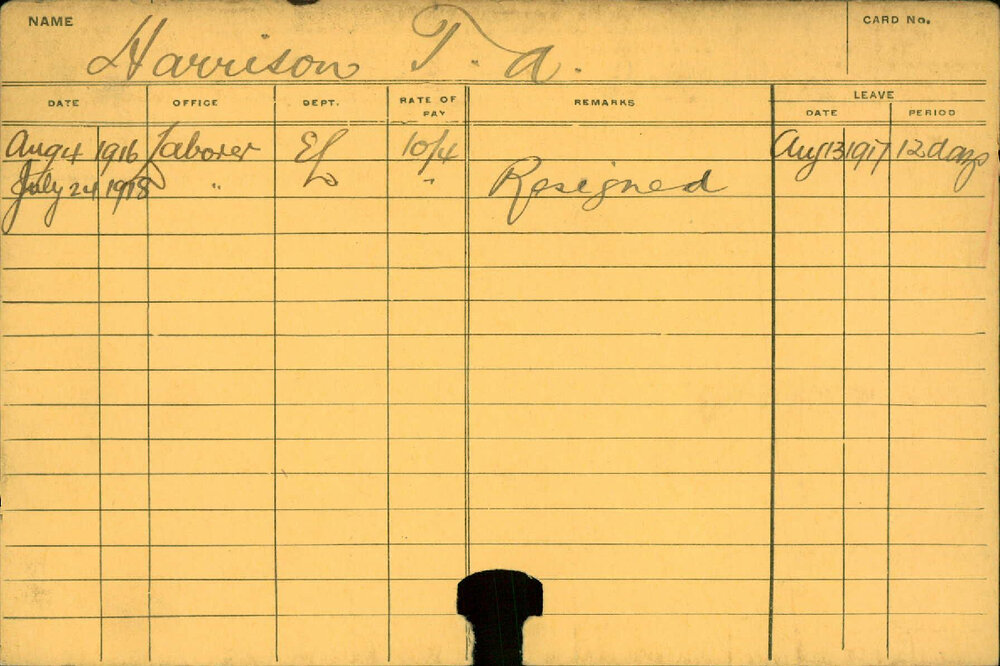 NAME Harrison T. A. CARD No.
DATE OFFICE DEPT. RATE OF PAY REMARKS LEAVE
DATE PERIOD
Aug 4 1916 Laborer EL 10/4 Aug 13 1917 12 days
July 24 1918 " " Resigned